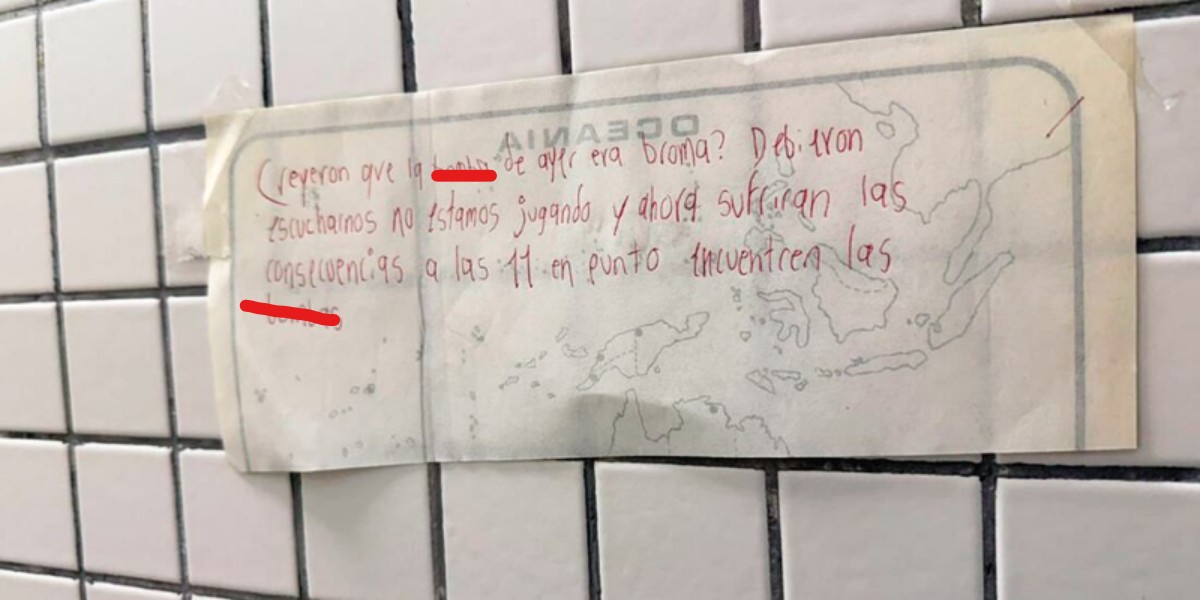 OCEANIA
Creyeron que la de ayer era broma? Debieron
escucharnos no estamos jugando y ahora sufriran las
consecuencias a las 11 en punto encuentren las